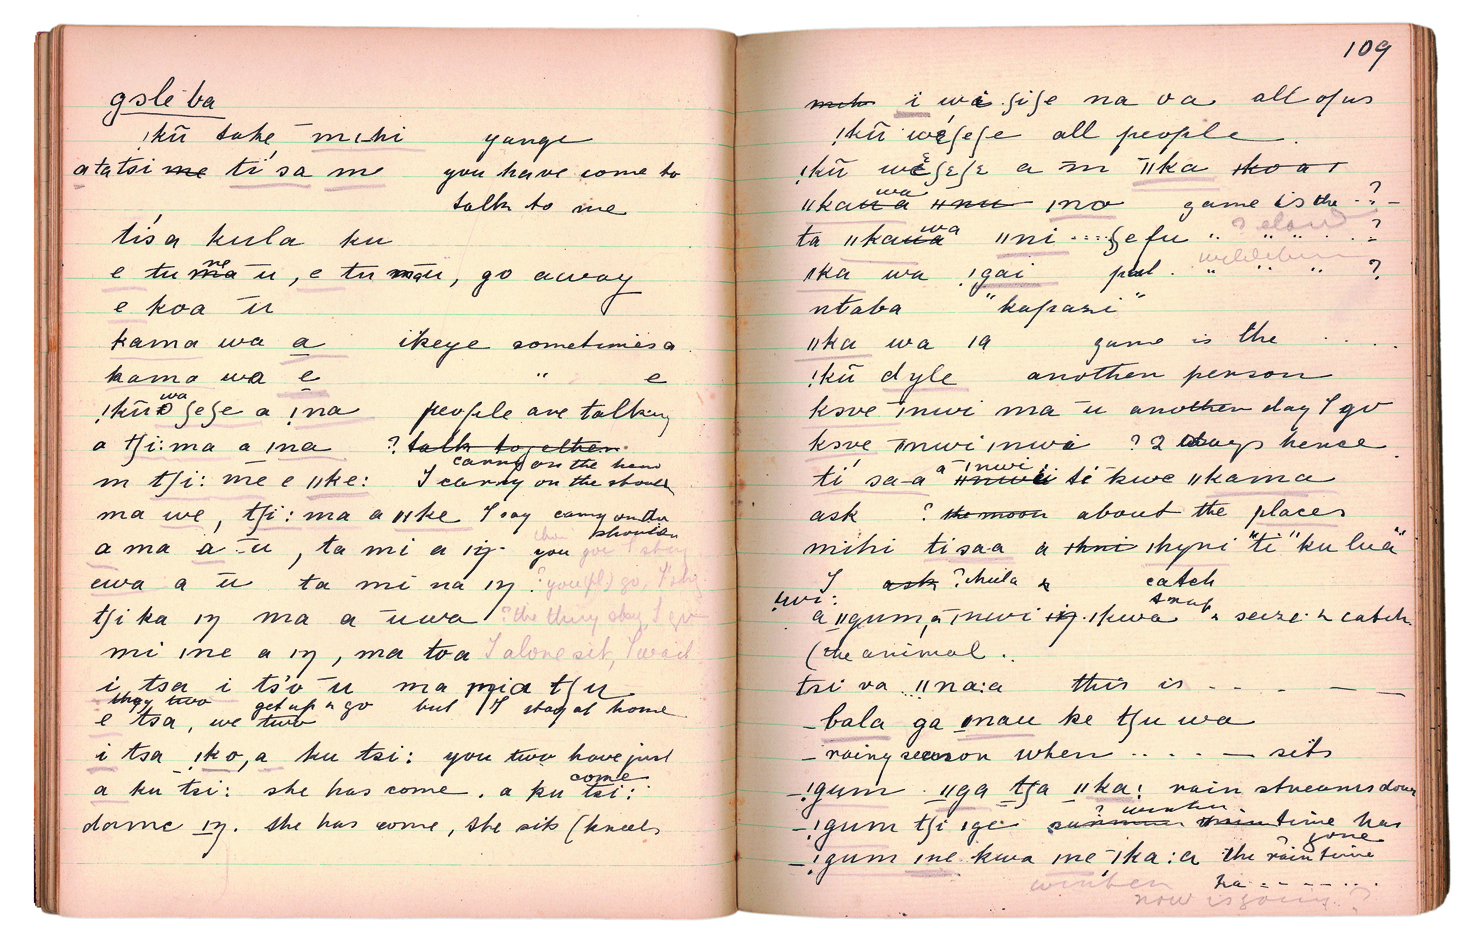 gsle ba
!kū take m̄ihi yange
atatsi me tí sa me you have come to
talk to me
tísa kula ku
e tu ma ne ū, e tu me ū, go away
e koa ū
kama wa a ikeye sometimes a
kama wa e " e
!kū wa ʃeʃe a ǃna people are talking
a tʃi:ma a ına ? talk together
carry on the head
m tʃi: m̄e e ǁke: I carry on the shoulder
ma we, tʃi: ma a ǁke I say carry on the shoulder
a ma a ū, ta mi a ıŋ you go I stay
ewa a ū ta mi na ıŋ ? you (pl) go, I stay
tʃi ka ıŋ ma a ūwa ? the thing stay, I go
mi ıne a ıŋ, ma toa I alone sit, I wait
i tsa i tso ū ma mia tʃu
they two get up & go but I stay at home
e tsa, we two
i tsa ıko, a ku tsi: you two have just
come
a ku tsi: she has come. a ku tsi:
dame ıŋ. she has come, she sits (kneels
109
i wa ʃiʃe na va all of us
!kū weʃeʃe all people
!kū weʃɛʃɛ a m̄ ǁka
ǁka wa ıno game is the - ? -
ta ǁka wa ǁni .... ʃefu " " " .. ? eland
ıka wa ıgai pal. " " " ?
ntaba "kapasi"
ǁka wa ıa game is the . . . .
!kū dyle another person
ksve īnwi ma ū another day I go
ksve īnwi ınwi ? 2 days hence
tí sa-a a īnwi té kwe ǁkama
ask ? the moon about the places
mihi tisaa a ıhni ıhyni "ti" ku lua"
I ask ? hula & catch
snap
a ǁgum, a īnwi ıŋ ıkwa " seize & catch
(the animal.
tsi va ǁna:a this is - - - - -
- bala ga ınau ke tʃu wa
- rainy season when .... — sits
- !gum ǁga tʃa ǁka: rain streams down
? winter
- !gum tʃi ıge summer rain time has
gone
- !gum ıne kwa me īka:a the rain time
winter ha - - - - - ..
now is going ?